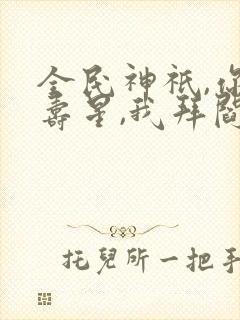 全民神祇,你
壽星,我拜閻
托兒所一把手